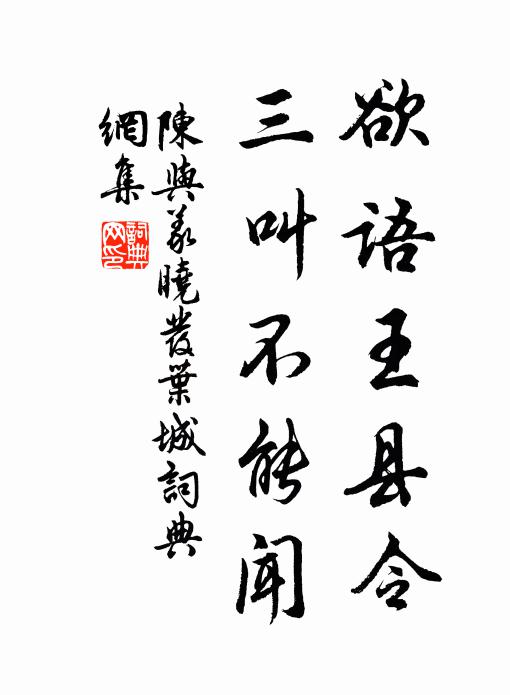 欲語王县令
三叫不能闻
陳與義曉發葉城詞典
網集
詞典
网印